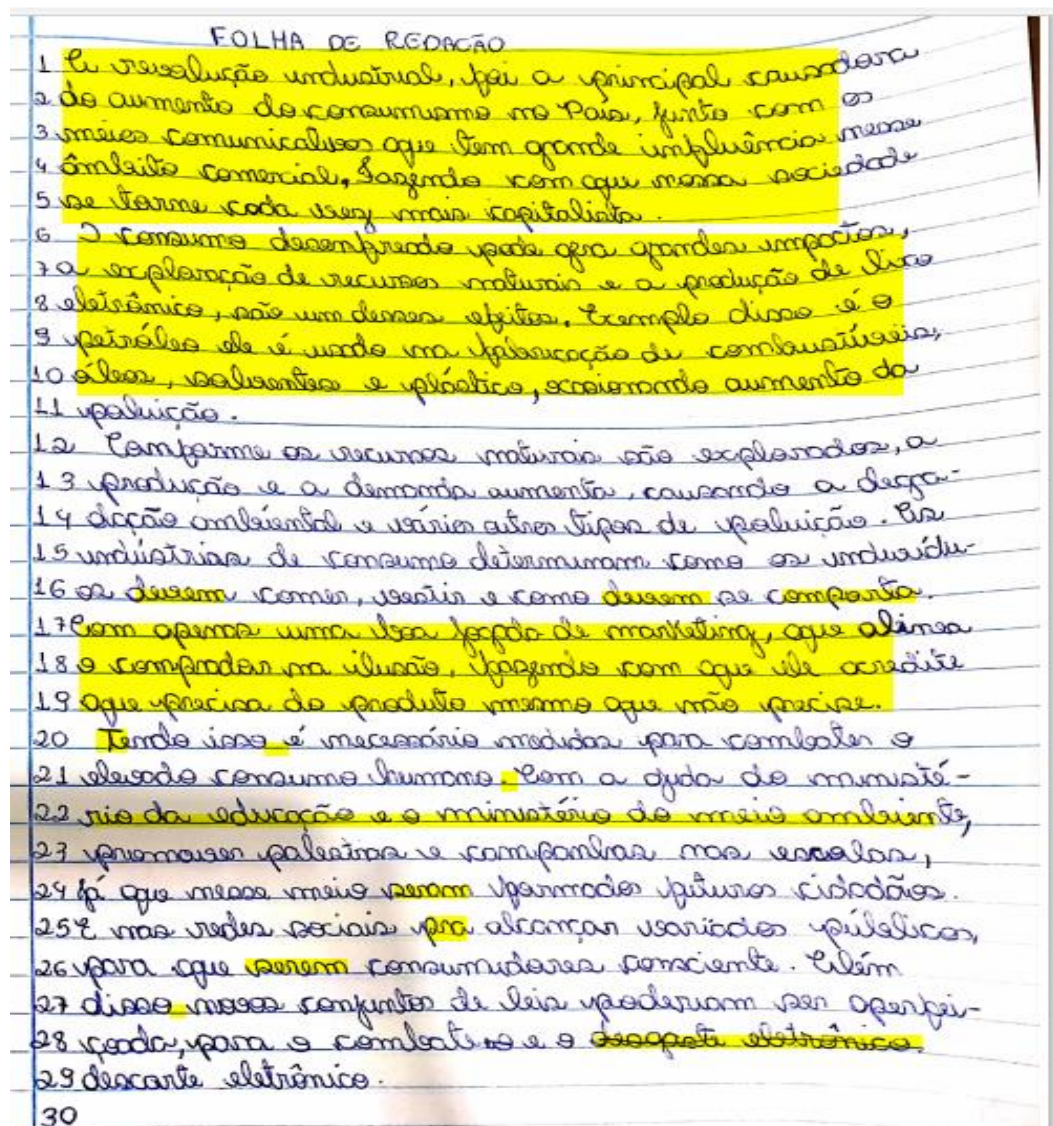 FOLHA DE REDAÇÃO
1 A revolução industrial, foi a principal causadora
2 do aumento do consumismo no País, junto com os
3 meios comunicativos que tem grande influência nesse
4 âmbito comercial, fazendo com que nossa sociedade
5 se torne cada vez mais capitalista.
6 O consumo desenfreado pode gera grandes impactos,
7 a exploração de recursos naturais e a produção de lixo
8 eletrônico, são um desses efeitos. Exemplo disso é o
9 petróleo ele é usado na fabricação de combustíveis,
10 óleos, solventes e plástico, ocasionando aumento da
11 poluição.
12 Conforme os recursos naturais são explorados, a
13 produção e a demanda aumenta, causando a degra-
14 dação ambiental e vários outros tipos de poluição. As
15 indústrias de consumo determinam como os individu-
16 os devem comer, vestir e como devem se comporta.
17 Com apenas uma boa jogada de marketing, que alinea
18 o comprador na ilusão, fazendo com que ele acredite
19 que precisa do produto mesmo que não precise.
20 Tendo isso é necessário medidas para combater o
21 elevado consumo humano. Com a ajuda do ministé-
22 rio da educação e o ministério do meio ambiente,
23 promover palestras e campanhas nas escolas,
24 já que nesse meio seram formados futuros cidadãos.
25 E nas redes sociais pra alcançar variados públicos,
26 para que serem consumidores consciente. Além
27 disso novos conjuntos de leis poderiam ser aperfei-
28 çoada, para o combate e o
29 descarte eletrônico.
30